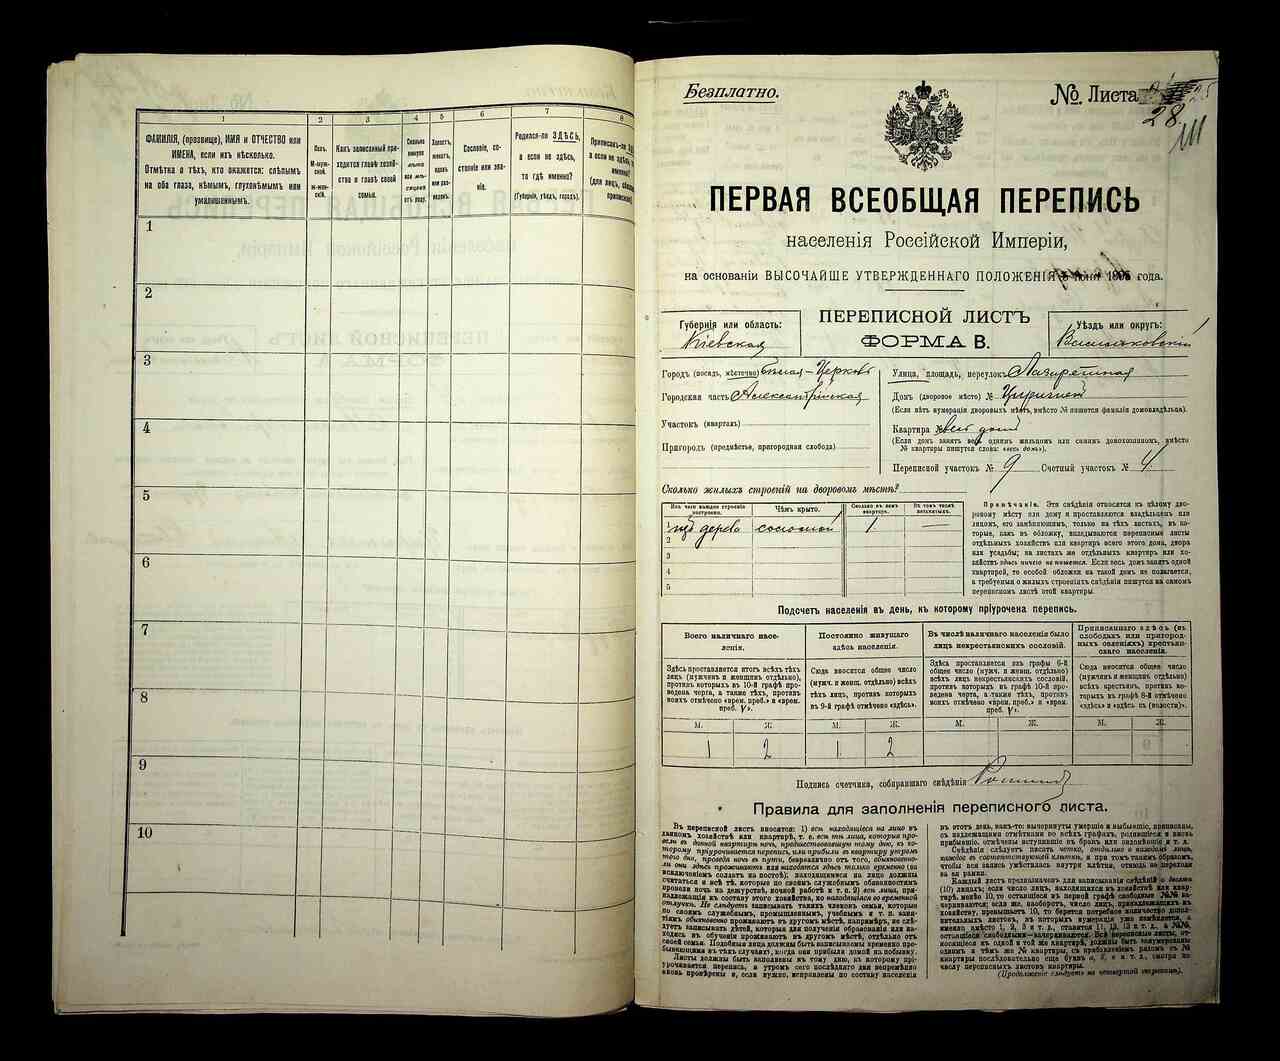 1
2
3
4
5
6
7
8
ФАМИЛІЯ, (прозвище), ИМЯ и ОТЧЕСТВО или
ИМЕНА, если ихъ нѣсколько.
Отмѣтка о тѣхъ, кто окажется: слѣпымъ
на оба глаза, нѣмымъ, глухонѣмымъ или
умалишеннымъ.
Полъ.
М-муж-
ской.
ж-жен-
скій.
Какъ записанный при-
ходится главѣ хозяй-
ства и главѣ своей
семьи.
Сколько
минуло
лѣтъ
или мѣ-
сяцевъ
отъ роду.
Холостъ,
женатъ,
вдовъ
или раз-
веденъ.
Сословіе, со-
стояніе или зва-
ніе.
Родился-ли ЗДѢСЬ,
а если не здѣсь,
то гдѣ именно?
(Губернія, уѣздъ, городъ).
1
2
3
4
5
6
7
8
9
10
Безплатно.
№ Листа
28
ПЕРВАЯ ВСЕОБЩАЯ ПЕРЕПИСЬ
населенія Россійской Имперіи,
на основаніи ВЫСОЧАЙШЕ УТВЕРЖДЕННАГО ПОЛОЖЕНІЯ 5 Іюня 1895 года.
ПЕРЕПИСНОЙ ЛИСТЪ
ФОРМА В.
Губернія или область:
Кіевская
Уѣздъ или округъ:
Васильковскій
Городъ (посадъ, мѣстечко) Бѣлая-Церковь
Городская часть Александрійская
Участокъ (кварталъ)
Пригородъ (предмѣстье, пригородная слобода)
Улица, площадь, переулокъ Лазаретная
Домъ (дворовое мѣсто) №
(Если нѣтъ нумераціи дворовыхъ мѣстъ, вмѣсто № пишется фамилія домовладѣльца).
Квартира № весь домъ
(Если домъ занятъ весь однимъ жильцомъ или самимъ домохозяиномъ, вмѣсто
№ квартиры пишутся слова: «весь домъ»).
Переписной участокъ № 9 Счетный участокъ № 4
Сколько жилыхъ строеній на дворовомъ мѣстѣ?
Изъ чего каждое строеніе
построено.
Чѣмъ крыто.
Сколько въ немъ
квартиръ.
Въ томъ числѣ
незанятыхъ.
1 изъ дерева соломой 1 —
2
3
4
5
Примѣчаніе. Эти свѣдѣнія относятся къ цѣлому дво-
ровому мѣсту или дому и проставляются владѣльцемъ или
лицомъ, его замѣняющимъ, только на тѣхъ листахъ, въ ко-
торые, какъ въ обложку, вкладываются переписные листы
отдѣльныхъ хозяйствъ или квартиръ всего этого дома, двора
или усадьбы; на листахъ же отдѣльныхъ квартиръ или хо-
зяйствъ здѣсь ничего не пишется. Если весь домъ занятъ одной
квартирой, то особой обложки на такой домъ не полагается,
а требуемыя о жилыхъ строеніяхъ свѣдѣнія пишутся на самомъ
переписномъ листѣ этой квартиры.
Подсчетъ населенія въ день, къ которому пріурочена перепись.
Всего наличнаго насе-
ленія.
Здѣсь проставляется итогъ всѣхъ тѣхъ
лицъ (мужчинъ и женщинъ отдѣльно),
противъ которыхъ въ 10-й графѣ про-
ведена черта, а также тѣхъ, противъ
коихъ отмѣчено «врем. преб.» и «врем.
преб. V».
Постоянно живущаго
здѣсь населенія.
Сюда вносится общее число
(мужч. и женщ. отдѣльно) всѣхъ
тѣхъ лицъ, противъ которыхъ
въ 9-й графѣ отмѣчено «здѣсь».
Въ числѣ наличнаго населенія было
лицъ некрестьянскихъ сословій.
Здѣсь проставляется изъ графы 6-й
общее число (мужч. и женщ. отдѣльно)
всѣхъ лицъ некрестьянскихъ сословій,
противъ которыхъ въ графѣ 10-й про-
ведена черта, а также тѣхъ, противъ
коихъ отмѣчено «врем. преб.» и «врем.
преб. V».
Приписаннаго здѣсь (въ
слободахъ или пригород-
ныхъ селеніяхъ) крестьян-
скаго населенія.
Сюда вносится общее число
(мужчинъ и женщинъ отдѣльно)
всѣхъ крестьянъ, противъ ко-
торыхъ въ графѣ 8-й отмѣчено
«здѣсь» и «здѣсь къ (волости)».
М. Ж. М. Ж. М. Ж. М. Ж.
1 2 1 2
Подпись счетчика, собиравшаго свѣдѣнія
Правила для заполненія переписного листа.
Въ переписной листъ вносятся: 1) всѣ находящіеся на лицо въ
данномъ хозяйствѣ или квартирѣ, т. е. всѣ тѣ лица, которыя про-
вели въ данной квартирѣ ночь, предшествовавшую тому дню, къ ко-
торому пріурочивается перепись, или прибыли въ квартиру утромъ
того дня, проведя ночь въ пути, безразлично отъ того, обыкновенно-
ли они здѣсь проживаютъ или находятся здѣсь только временно (за
исключеніемъ солдатъ на постоѣ); находящимися на лицо должны
считаться и всѣ тѣ, которые по своимъ служебнымъ обязанностямъ
провели ночь на дежурствѣ, ночной работѣ и т. п. 2) всѣ лица, при-
надлежащія къ составу этого хозяйства, но находящіяся во временной
отлучкѣ. Не слѣдуетъ записывать такихъ членовъ семьи, которые
по своимъ служебнымъ, промышленнымъ, учебнымъ и т. п. заня-
тіямъ обыкновенно проживаютъ въ другомъ мѣстѣ, напримѣръ, не слѣ-
дуетъ записывать дѣтей, которыя для полученія образованія или на-
ходясь въ обученіи проживаютъ въ другомъ мѣстѣ, отдѣльно отъ
своей семьи. Подобныя лица должны быть записываемы временно пре-
бывающими въ тѣхъ случаяхъ, когда они прибыли домой на побывку.
Листы должны быть заполнены къ тому дню, къ которому прі-
урочивается перепись, а утромъ сего послѣдняго дня непремѣнно
вновь провѣрены и, если нужно, исправлены по составу населенія
въ этотъ день, какъ-то: вычеркнуты умершіе и выбывшіе, приписаны,
съ надлежащими отмѣтками во всѣхъ графахъ, родившіеся и вновь
прибывшіе, отмѣчены вступившіе въ бракъ или овдовѣвшіе и т. д.
Свѣдѣнія слѣдуетъ писать четко, отдѣльно о каждомъ лицѣ,
каждое въ соотвѣтствующей клѣткѣ, и при томъ такимъ образомъ,
чтобы вся запись умѣстилась внутри клѣтки, отнюдь не переходя
за ея рамки.
Каждый листъ предназначенъ для записыванія свѣдѣній о десяти
(10) лицахъ; если число лицъ, находящихся въ хозяйствѣ или квар-
тирѣ, менѣе 10, то оставшіеся въ первой графѣ свободные №№ за-
черкиваются; если же, наоборотъ, число лицъ, принадлежащихъ къ
хозяйству, превышаетъ 10, то берется потребное количество допол-
нительныхъ листовъ, въ которыхъ нумерація уже измѣняется, а
именно вмѣсто 1, 2, 3 и т. д., ставится 11, 12, 13 и т. д., а №№,
оставшіеся свободными—зачеркиваются. Всѣ переписные листы, от-
носящіеся къ одной и той же квартирѣ, должны быть занумерованы
однимъ и тѣмъ же № квартиры, съ прибавленіемъ рядомъ съ №
квартиры послѣдовательно еще буквъ а, б, в и т. д., смотря по
числу переписныхъ листовъ квартиры.
(Продолженіе слѣдуетъ на четвертой страницѣ).